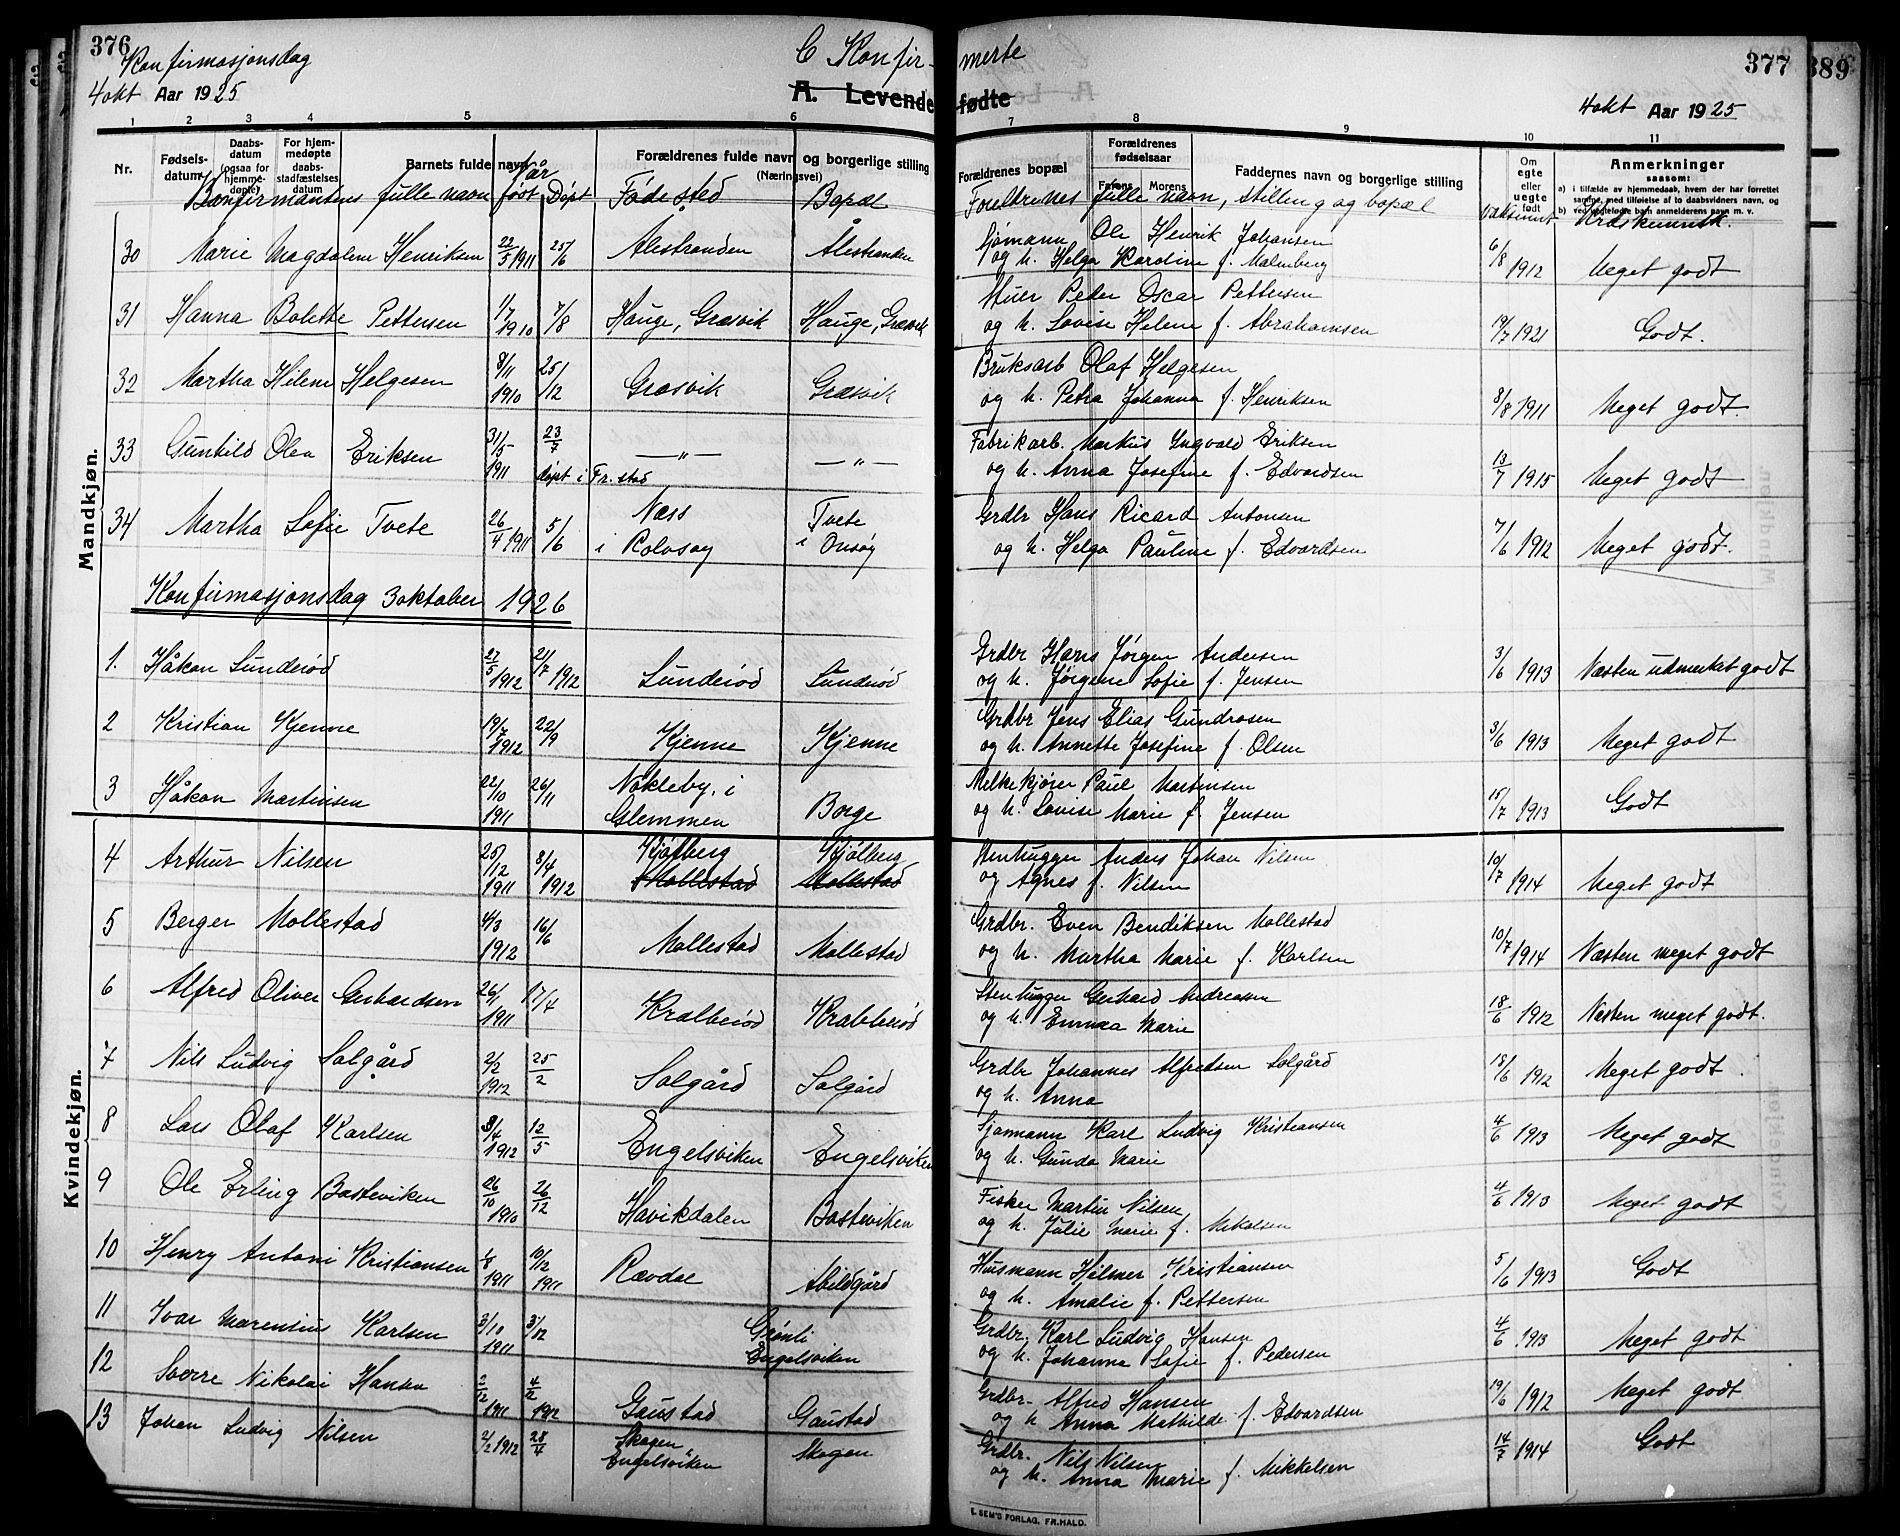 376
Konfirmasjonsdag
4 okt Aar 1925
C Konfir-
merte
A. Levende fødte
377
389
4 okt Aar 1925
1 2 3 4 5 6 7 8 9 10 11
Nr.
Fødsels-
datum
Daabs-
datum
(ogsaa for
hjemme-
døpte)
For hjem-
medøpte
daabs-
stadfæstelses
datum
Barnets fulde navn
Forældrenes fulde navn og borgerlige stilling
(Næringsvei)
Forældrenes bopæl
Forældrenes
fødselsaar
Farens Morens
Faddernes navn og borgerlige stilling
Om
egte
eller
uegte
født
Anmerkninger
saasom:
a) i tilfælde av hjemmedaab, hvem der har forrettet
samme, med tilføielse av to daabsvidners navn, og
b) ved uegtefødte barn anmelderens navn m. v.
Konfirmantens fulle navn Når født Døpt Fødested Bopæl Foreldrenes fulle navn, stilling og bopæl Vaksinert Kristkunnsk.
Mandkjøn.
30 Marie Magdalene Henriksen 22/5 1911 25/6 Ålestranden Ålestranden Sjømann Ole Henrik Johansen
og h. Helga Kardine f. Malmberg 6/8 1912 Meget godt
31 Hanna Bolette Pettersen 1/7 1910 7/8 Hauge, Græsvik Hauge, Græsvik Stuer Peder Oscar Pettersen
og h. Lovise Helene f. Abrahamsen 19/7 1921 Godt.
32 Martha Helene Helgesen 8/11 1910 25/12 Græsvik Græsvik Bruksarb Olaf Helgesen
og h. Petra Johanna f. Henriksen 8/8 1911 Meget godt
33 Gunhild Olea Eriksen 31/5 1911 23/7 døpt i Fr.stad —"— —"— Fabrikarb. Markus Ingvald Eriksen
og h. Anna Josefine f. Edvardsen 13/7 1915 Meget godt
34 Martha Sofie Tvete 26/4 1911 5/6 Næss i Rolvsøy Tvete i Onsøy Grdbr Hans Ricard Antonsen
og h. Helga Pauline f. Edvardsen 7/6 1912 Meget godt.
Konfirmasjonsdag 3 oktober 1926
1. Håkon Sunderød 27/5 1912 21/7 1912 Sunderød Sunderød Grdbr Hans Jørgen Andersen
og h. Jørgine Sofie f. Jensen 3/6 1913 Næsten udmerket godt
2 Kristian Kjenne 19/7 1912 22/9 Kjenne Kjenne Grdbr Jens Elias Gundrosen
og h. Annette Josefine f. Olsen 3/6 1913 Meget godt
3 Håkon Martinsen 22/10 1911 26/11 Nøkleby, i Glemmen Borge Melkekjører Paul Martinsen
og h. Lovise Marie f. Jensen 15/7 1913 Godt
Kvindekjøn.
4 Arthur Nilsen 25/12 1911 8/4 1912 Kjølberg Mollestad Kjølberg Mollestad Stenhugger Anders Johan Nilsen
og Agnes f. Nilsen 10/7 1914 Meget godt
5 Berger Mollestad 4/3 1912 16/6 Mollestad Mollestad Grdbr. Even Bendiksen Mollestad
og h. Martha Marie f. Karlsen 10/7 1914 Næsten meget godt
6 Alfred Oliver Gerhardsen 26/1 1911 17/4 Krabberød Krabberød Stenhugger Gerhard Andreassen
og h. Emma Marie 18/6 1912 Næsten meget godt.
7 Nils Ludvig Solgård 2/2 1912 25/2 Solgård Solgård Grdbr Johannes Alfredsen Solgård
og h. Anna 18/6 1912 Meget godt.
8 Lars Olaf Karlsen 8/4 1912 12/5 Engelsviken Engelsviken Sjømann Karl Ludvig Kristiansen
og h. Gunda Marie 4/6 1913 Meget godt
9 Ole Erling Basteviken 26/10 1910 26/12 Havikdalen Basteviken Fisker Martin Nilsen
og h. Julie Marie f. Mikalsen 4/6 1913 Meget godt
10 Henry Antoni Kristiansen 1/8 1911 10/12 1911 Rævdal Abildgård Husmann Hilmer Kristiansen
og h. Amalie f. Pettersen 5/6 1913 Godt
11 Ivar Marensius Karlsen 3/10 1911 31/12 Grønli Engelsviken Grdbr. Karl Ludvig Hansen
og h. Johanna Sofie f. Pedersen 4/6 1913 Meget godt
12 Sverre Nikolai Hansen 2/12 1911 4/2 1912 Gaustad Gaustad Grdbr. Alfred Hansen
og h Anna Mathilde f. Edvardsen 19/6 1912 Meget godt
13 Johan Ludvig Nilsen 2/2 1912 28/4 Skogen Engelsviken Skogen Grdbr. Nils Nilsen
og h. Anna Marie f. Mikkelsen 14/7 1914 Godt
E. SEM'S FORLAG, FR.HALD.